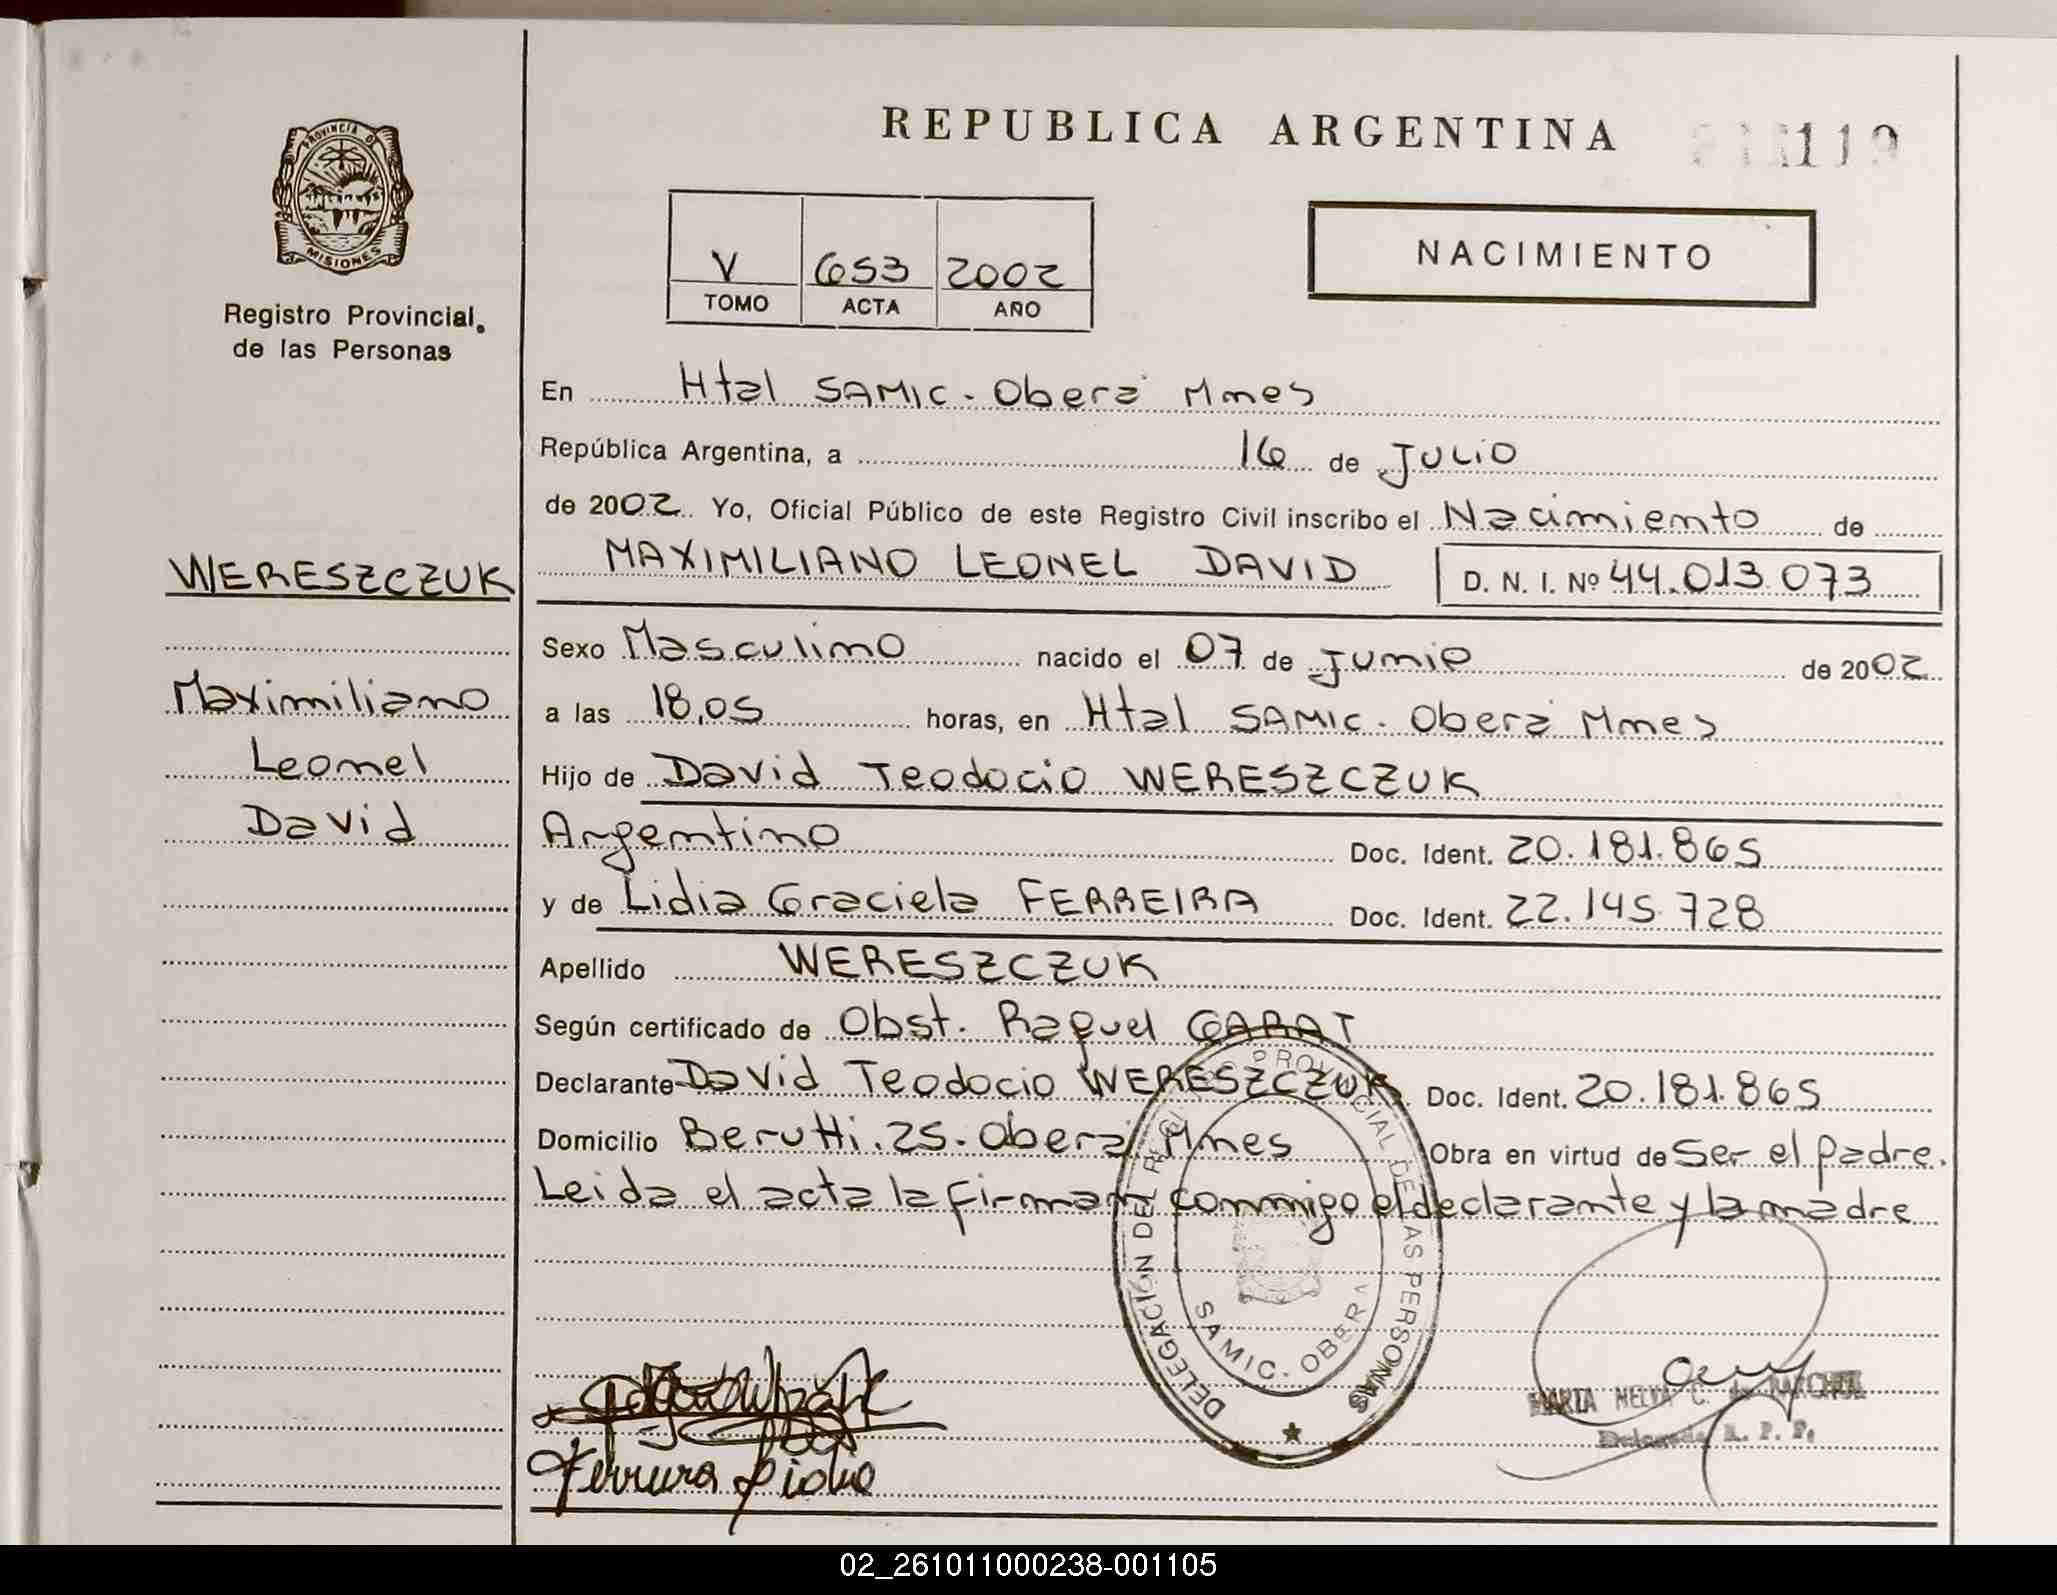 REPUBLICA ARGENTINA
119
PROVINCIA DE
MISIONES
Registro Provincial
de las Personas
V 653 2002
TOMO ACTA AÑO
NACIMIENTO
En Htal SAMIC - Oberá Mnes
República Argentina, a 16 de Julio
de 2002 Yo, Oficial Público de este Registro Civil inscribo el Nacimiento de
MAXIMILIANO LEONEL DAVID D. N. I. Nº 44.013.073
WERESZCZUK
Maximiliano
Leonel
David
Sexo Masculino nacido el 07 de Junio de 2002
a las 18,05 horas, en Htal SAMIC - Oberá Mnes
Hijo de David Teodocio WERESZCZUK
Argentino Doc. Ident. 20.181.865
y de Lidia Graciela FERREIRA Doc. Ident. 22.145.728
Apellido WERESZCZUK
Según certificado de Obst. Raquel GARAT
Declarante David Teodocio WERESZCZUK Doc. Ident. 20.181.865
Domicilio Berutti.25-Oberá Mnes Obra en virtud de Ser el padre.
Leida el acta la firman conmigo el declarante y la madre
DELEGACIÓN DEL REGISTRO PROVINCIAL DE LAS PERSONAS
SAMIC - OBERA
MARTA NELVA C. de
Delegada R. P. P.
Ferreira Lidia
02_261011000238-001105